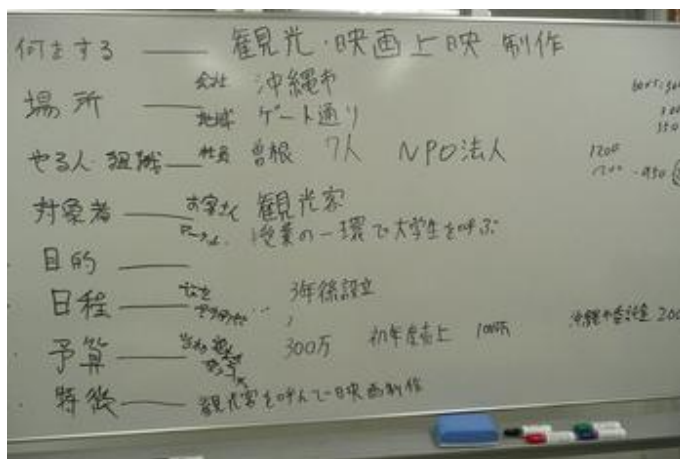 何をする 観光・映画上映 制作
会社 沖縄市
場所
地域 ゲート通り
やる人・組織 社員 曽根 7人 NPO法人
1200
対象者 お客さん 観光客
授業の一環で大学生を呼ぶ
目的
日程 3年後設立
予算 300万 初年度売上 100万 沖縄市委託金 200
特徴 観光客を呼んで映画制作